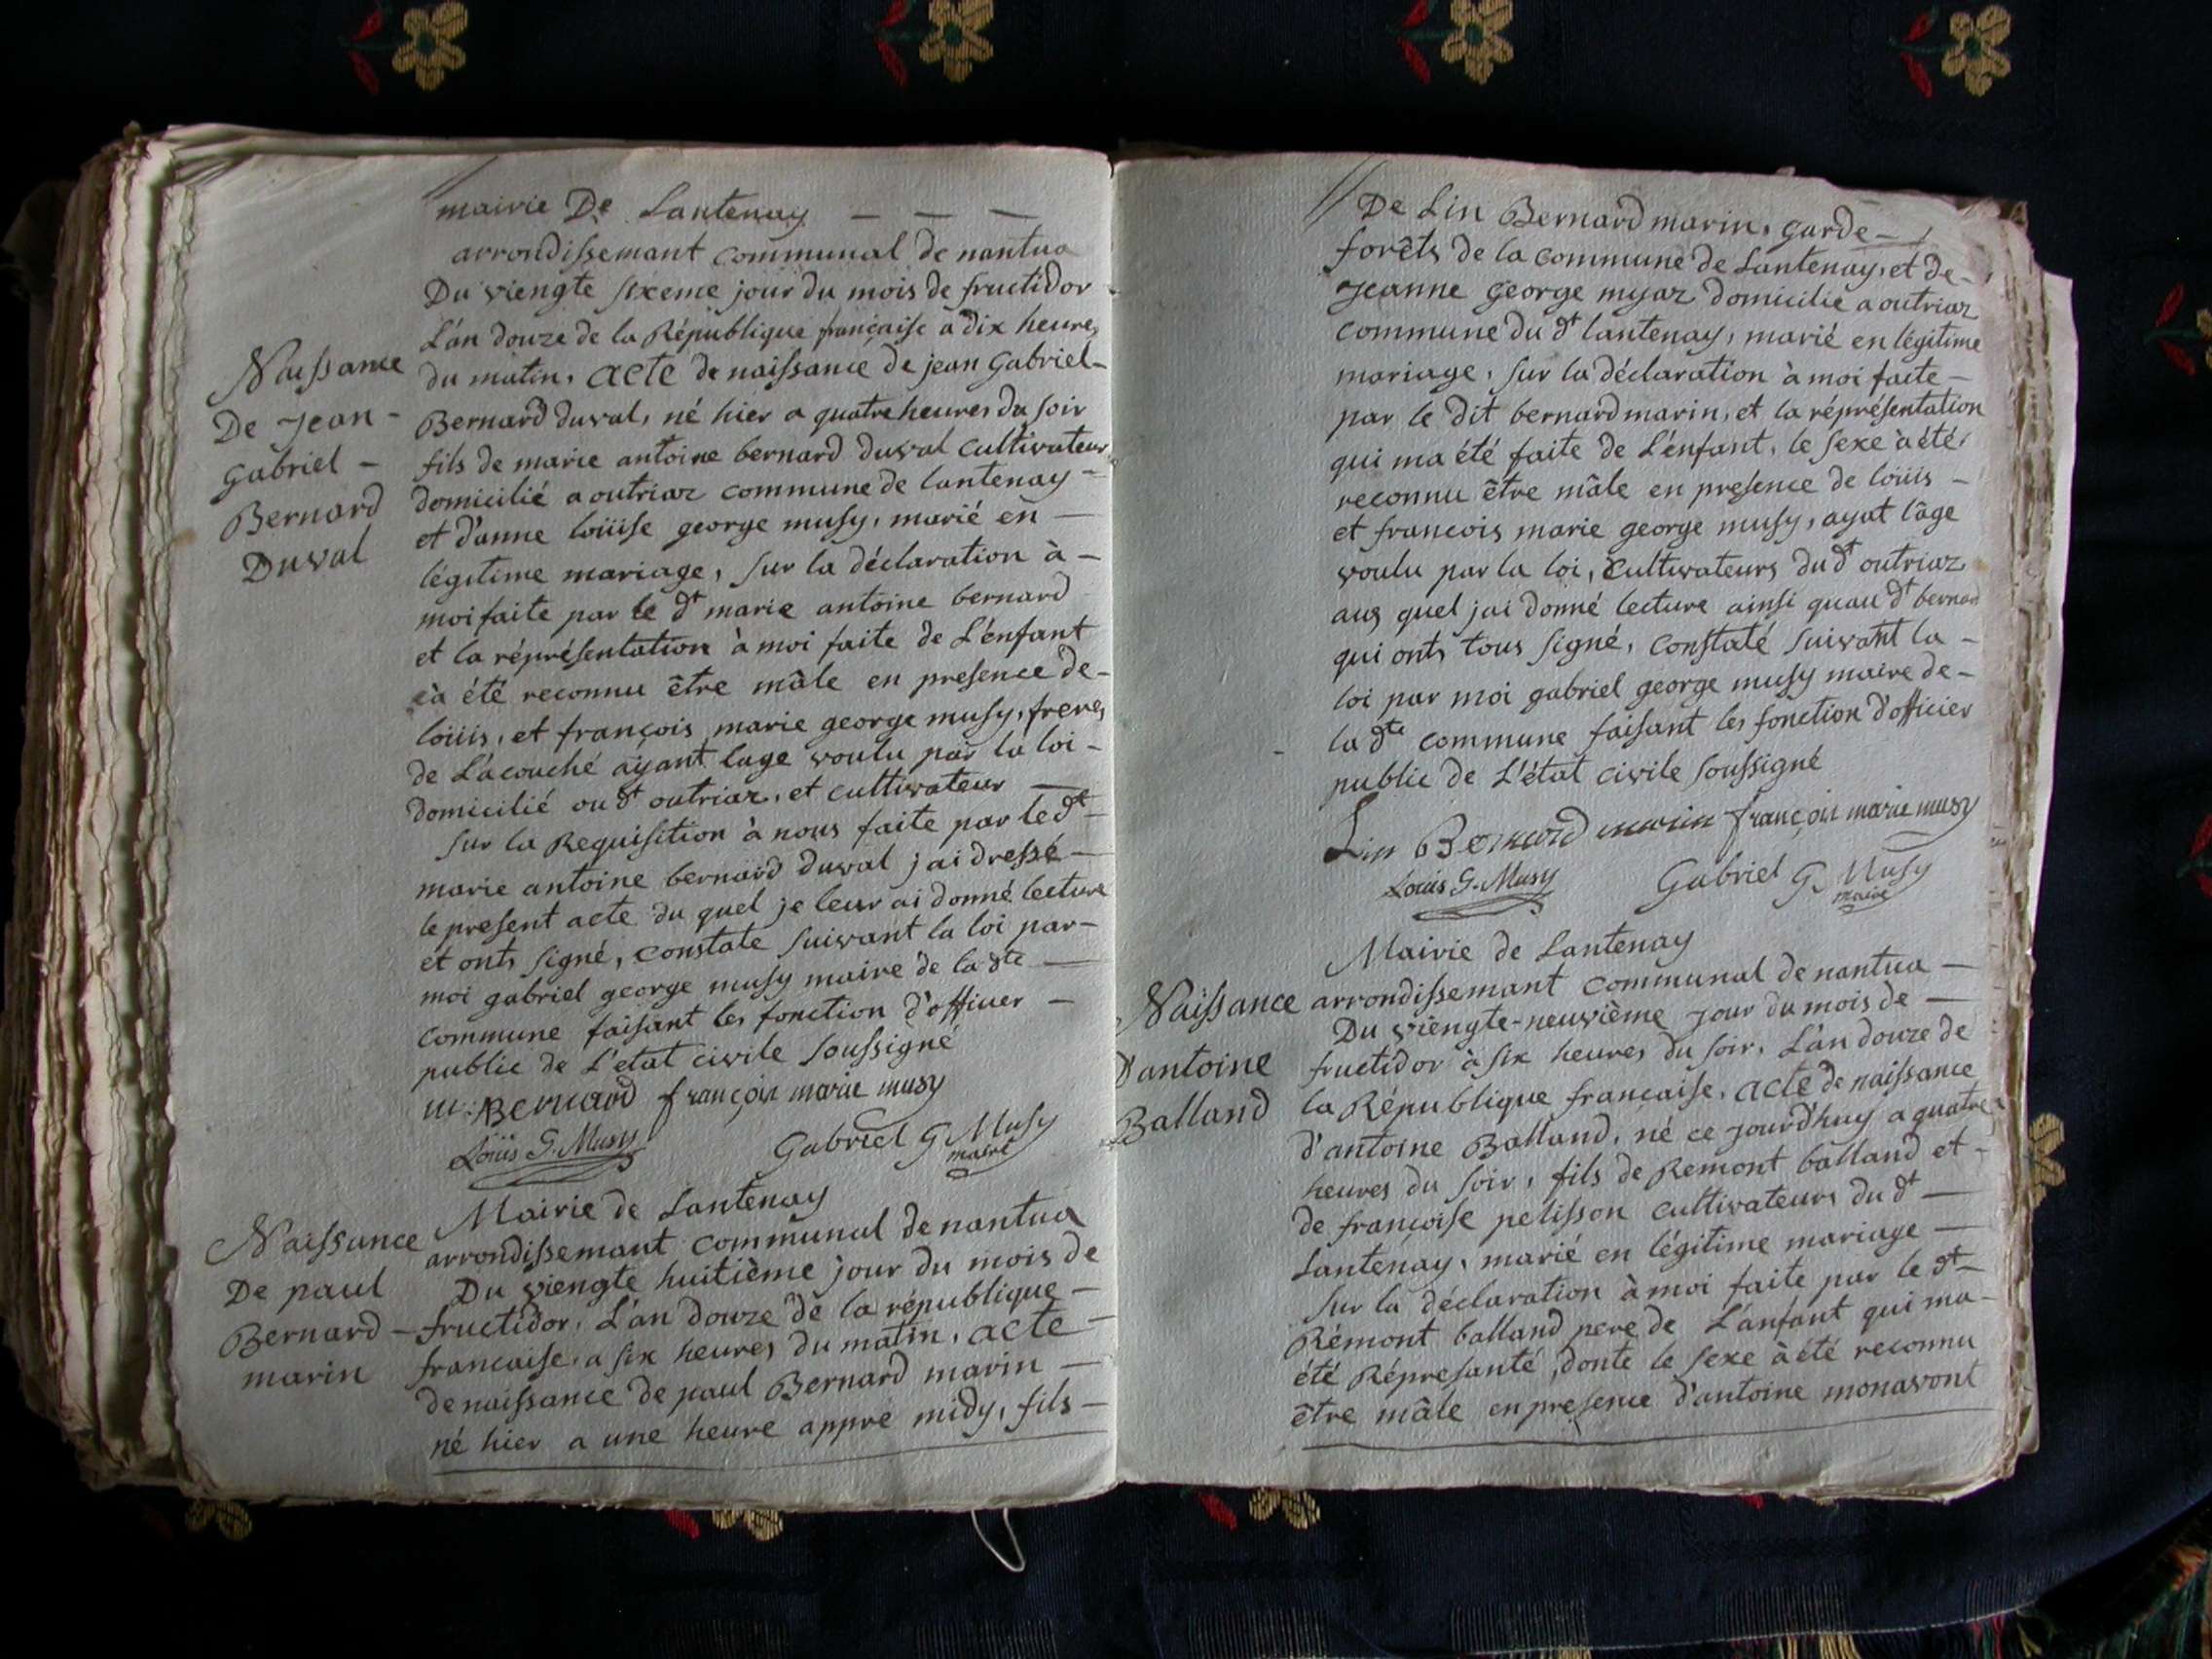 mairie De Lantenay — — —
arrondissemant communal de nantua
Du viengte sixeme jour du mois de fructidor
L'án douze de la République française a dix heures
du matin, acte de naissance de jean gabriel -
Bernard duval, né hier a quatre heures du soir
fils de marie antoine bernard duval cultivateur
domicilié a outriaz commune de lantenay -
et d'anne loüise george musy, marié en —
légitime mariage, sur la déclaration à -
moi faite par le dt marie antoine bernard
et la réprésentation à moi faite de L'énfant
à été reconnu être mâle en presence de -
loüis, et françois marie george musy, freres
de L'acouché ayant lage voulu par la loi -
domicilié au dt outriaz, et cultivateur —
sur la Requisition à nous faite par le dt -
marie antoine bernard duval j'ai dressé -
le present acte du quel je leur ai donné lecture
et onts signé, constate suivant la loi par -
moi gabriel george musy maire de la dte —
commune faisant les fonction d'officier —
public de L'etat civile soussigné
m: Bernard françois marie musy
Loüis G. Musy Gabriel G Musy
maire
Naissance
De Jean -
gabriel -
Bernard
Duval
Mairie de Lantenay
arrondissemant communal de nantua
Du viengte huitième jour du mois de
fructidor, L'án douze de la république -
francaise, a six heures du matin, acte -
de naissance de paul Bernard marin —
né hier a une heure appre midy, fils -
Naissance
De paul
Bernard -
marin
De Lin Bernard marin, garde -
forêts de la commune de Lantenay, et de -
Jeanne george myaz domicilié a outriaz
commune du dt lantenay, marié en légitime
mariage, sur la déclaration à moi faite -
par le dit bernard marin, et la réprésentation
qui ma été faite de L'énfant, le sexe à été
reconnu être mâle en presence de loüis -
et francois marie george musy, ayat l'âge
voulu par la loi, cultivateurs du dt outriaz
aux quel jai donné lecture ainsi quau dt bernard
qui onts tous signé, constaté suivant la -
loi par moi gabriel george musy maire de -
la dte commune faisant les fonction d'officier
public de L'état civile soussigné
Lin Bernard marin françois marie musy
Louis G. Musy Gabriel G. Musy
maire
Mairie de Lantenay
arrondissemant communal de nantua —
Du viengte-neuvième jour du mois de —
fructidor à six heures du soir, L'án douze de
la République francaise, acte de naissance
d'antoine Balland, né ce jourd'huy a quatre
heures du soir, fils de Remont balland et -
de françoise pelisson cultivateurs du dt —
Lantenay, marié en légitime mariage —
sur la déclaration à moi faite par le dt -
Rémont balland pere de L'anfant qui ma -
été Répresanté, donte le sexe à été reconnu
être mâle en presence d'antoine monavont
Naissance
D'antoine
Balland